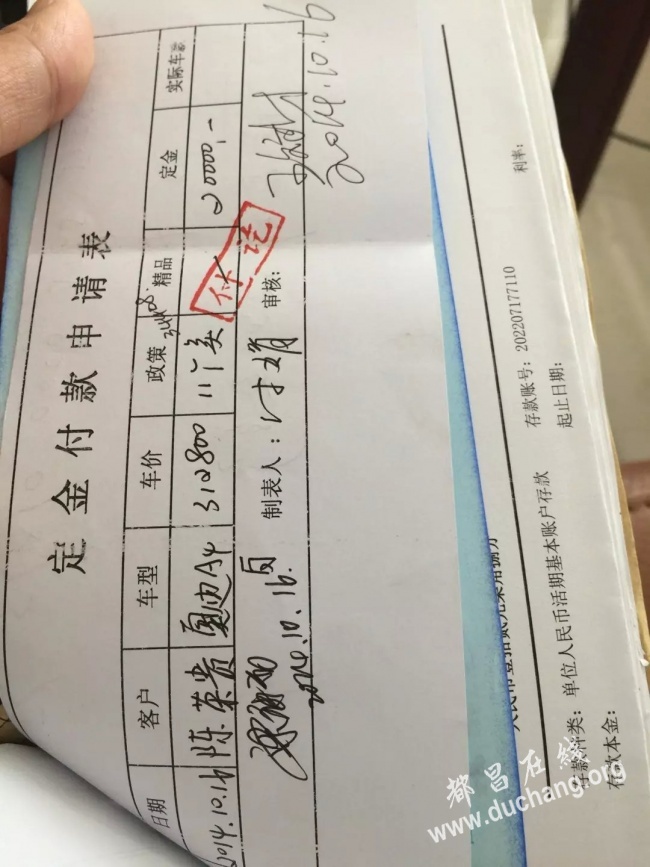 定金付款申请表
日期 客户 车型 车价 政策 精品 定金 实际车款
2014.10.16 陈荣贵 奥迪A4 312800 20000.-
付讫
制表人: 审核:
2014.10.16
2014.10.16
存款种类: 单位人民币活期基本账户存款 存款账号: 202207177110 利率:
存款本金: 起止日期:
都昌在线
www.duchang.org